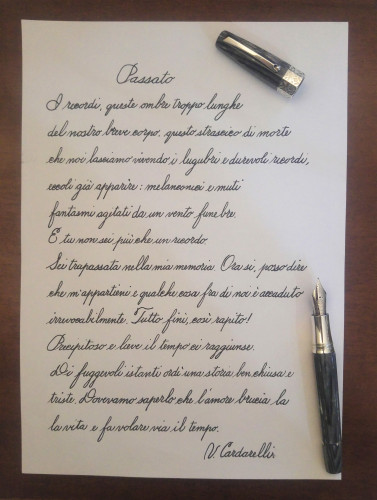 Passato
I ricordi, queste ombre troppo lunghe
del nostro breve corpo, questo strascico di morte
che noi lasciamo vivendo, i lugubri e durevoli ricordi,
eccoli già apparire: melanconici e muti
fantasmi agitati da un vento funebre.
E tu non sei più che un ricordo.
Sei trapassata nella mia memoria. Ora sì, posso dire
che m'appartieni e qualche cosa fra di noi è accaduto
irrevocabilmente. Tutto finì, così rapito!
Precipitoso e lieve il tempo ci raggiunse.
Di fuggevoli istanti ordì una storia ben chiusa e
triste. Dovevamo saperlo che l'amore brucia la
la vita e fa volare via il tempo.
V. Cardarelli